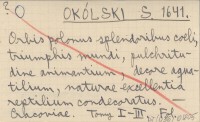 ? O OKÓLSKI S. 1641.
Orbis polonus splendoribus coeli,
triumphis mundi, pulchritu-
dine animantium, decore aqua-
tilium, naturae excellentia
reptilium condecoratus.
Cracoviae. Tomy I-III